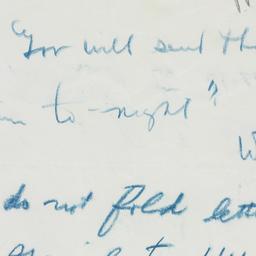 "You will send th
to-night"?
W
do not fold lett